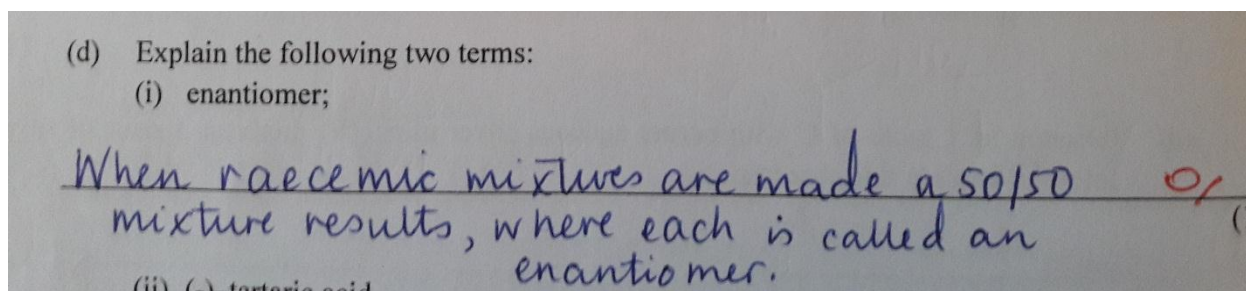 (d) Explain the following two terms:
(i) enantiomer;
When raecemic mixtures are made a 50/50 0/
mixture results, where each is called an (
enantiomer.
(ii) (-) tartaric acid